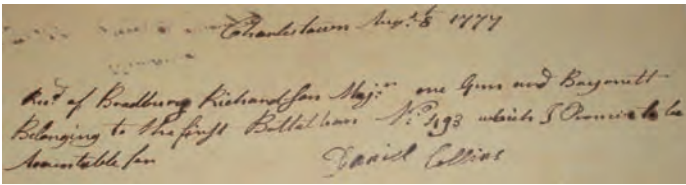 Charlestown Augst 8 1777
Recd of Bradbury Richardson Majr one Gun and Bayonett
Belonging to the first Battallion No 493 which I Promise to be
Acountable for
Daniel Collins